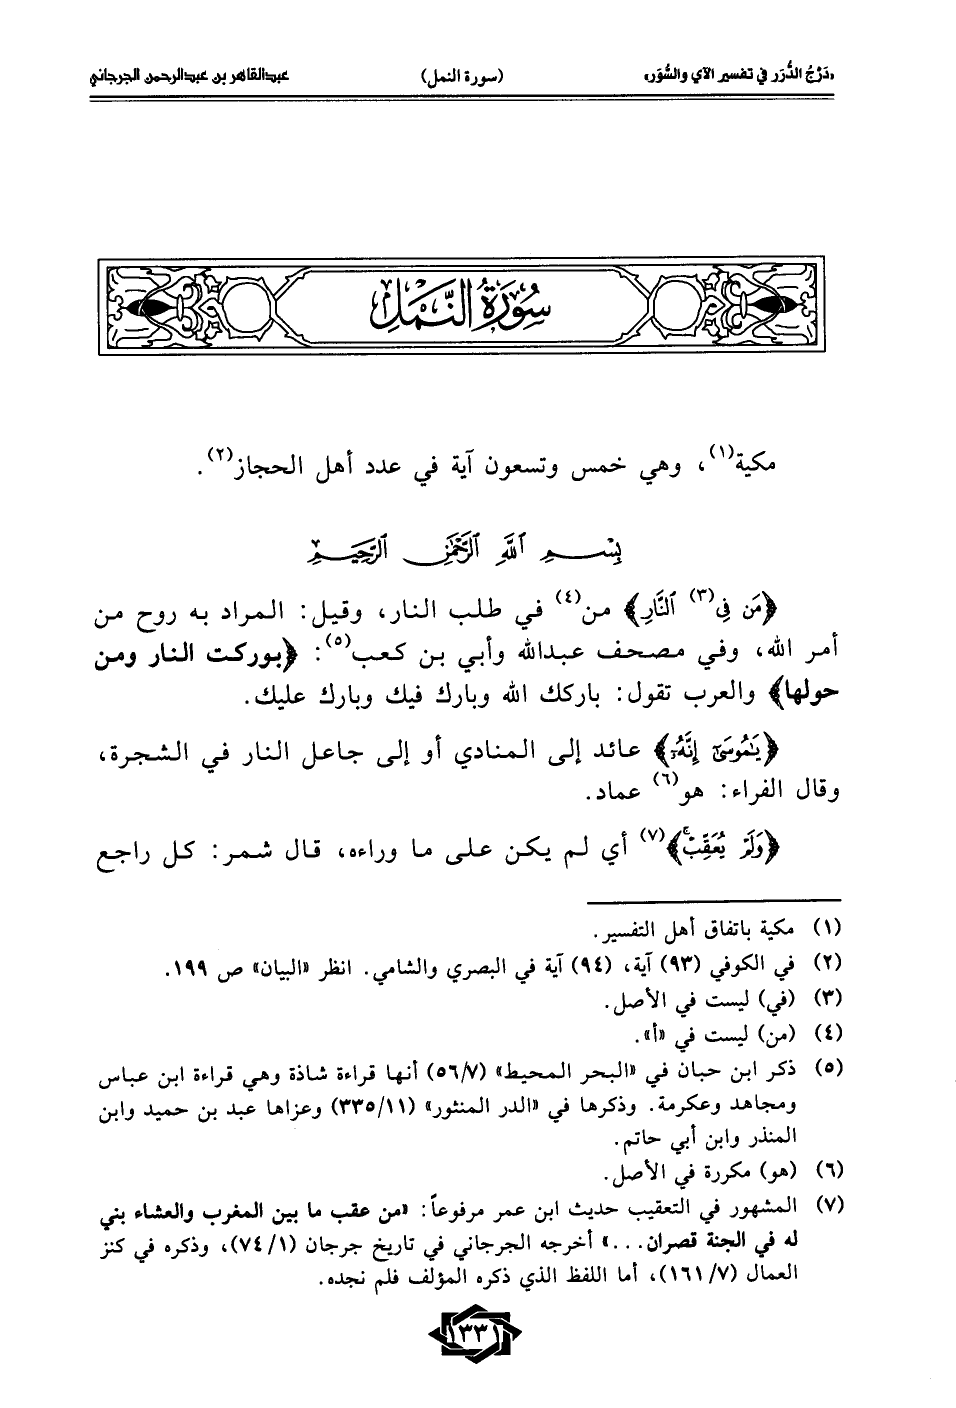 «دَرْجُ الدُّرَر في تفسير الآي والسُّوَر» (سورة النمل) عبدالقاهر بن عبدالرحمن الجرجاني
سُورَةُ النَّمْلِ
مكية(١)، وهي خمس وتسعون آية في عدد أهل الحجاز(٢).
بِسْمِ ٱللَّهِ ٱلرَّحْمَٰنِ ٱلرَّحِيمِ
﴿مَن فِي(٣) ٱلنَّارِ﴾ من(٤) في طلب النار، وقيل: المراد به روح من
أمر الله، وفي مصحف عبدالله وأبي بن كعب(٥): ﴿بوركت النار ومن
حولها﴾ والعرب تقول: باركك الله وبارك فيك وبارك عليك.
﴿يَٰمُوسَىٰٓ إِنَّهُۥٓ﴾ عائد إلى المنادي أو إلى جاعل النار في الشجرة،
وقال الفراء: هو(٦) عماد.
﴿وَلَمْ يُعَقِّبْ﴾(٧) أي لم يكن على ما وراءه، قال شمر: كل راجع
(١) مكية باتفاق أهل التفسير.
(٢) في الكوفي (٩٣) آية، (٩٤) آية في البصري والشامي. انظر «البيان» ص ١٩٩.
(٣) (في) ليست في الأصل.
(٤) (من) ليست في «أ».
(٥) ذكر ابن حبان في «البحر المحيط» (٥٦/٧) أنها قراءة شاذة وهي قراءة ابن عباس
ومجاهد وعكرمة. وذكرها في «الدر المنثور» (٣٣٥/١١) وعزاها عبد بن حميد وابن
المنذر وابن أبي حاتم.
(٦) (هو) مكررة في الأصل.
(٧) المشهور في التعقيب حديث ابن عمر مرفوعاً: «من عقب ما بين المغرب والعشاء بني
له في الجنة قصران...» أخرجه الجرجاني في تاريخ جرجان (٧٤/١)، وذكره في كنز
العمال (١٦١/٧)، أما اللفظ الذي ذكره المؤلف فلم نجده.
١٣٣١